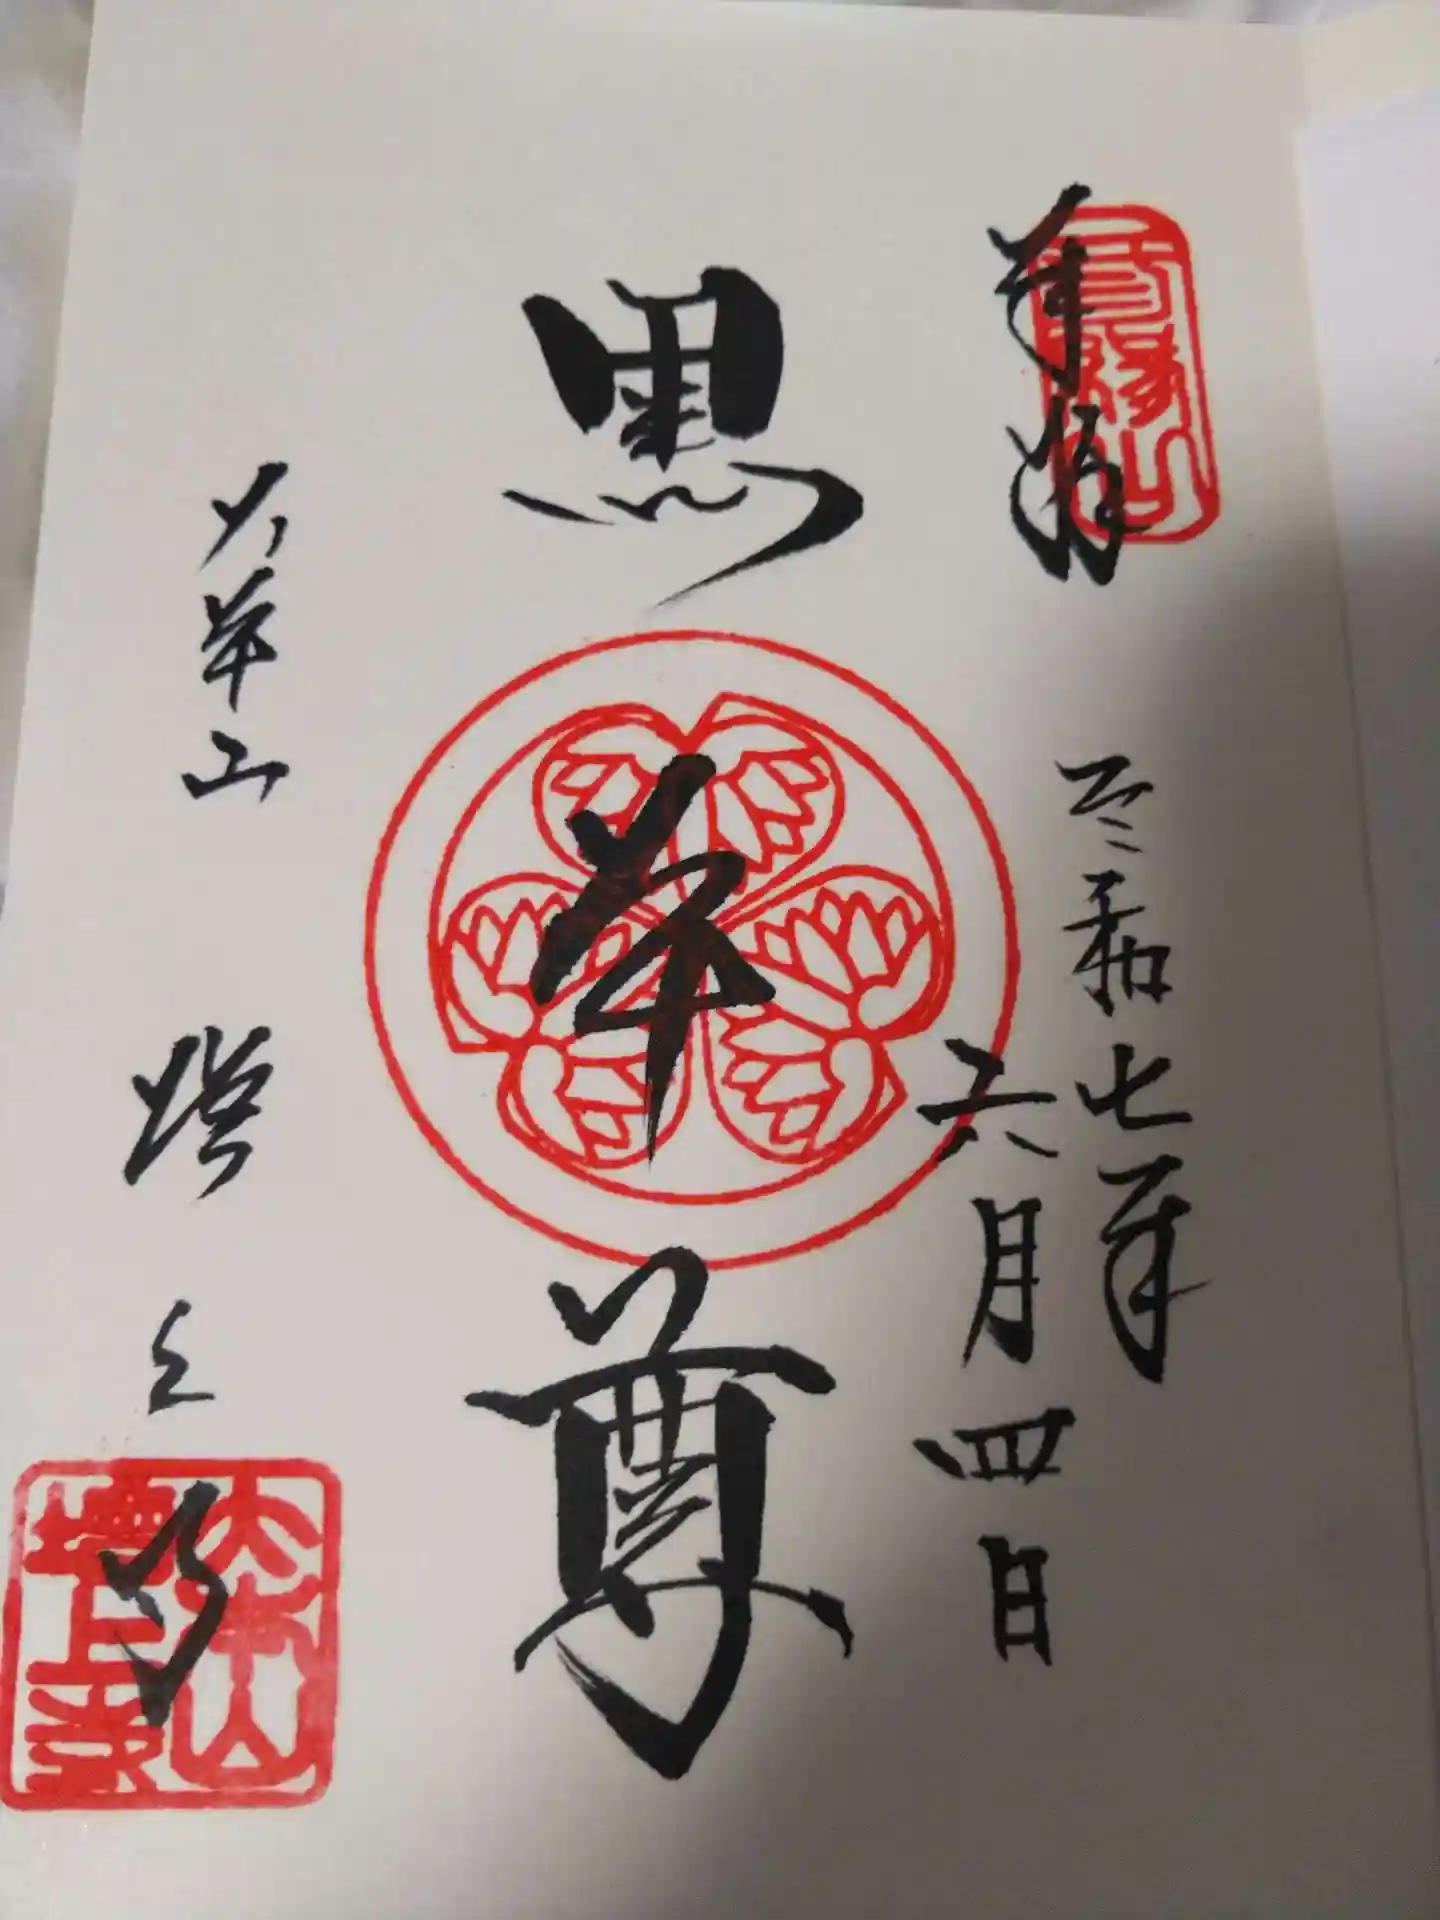 奉拝
三縁山
令和七年
六月四日
黒本尊
大本山
増上寺
大本山
増上寺